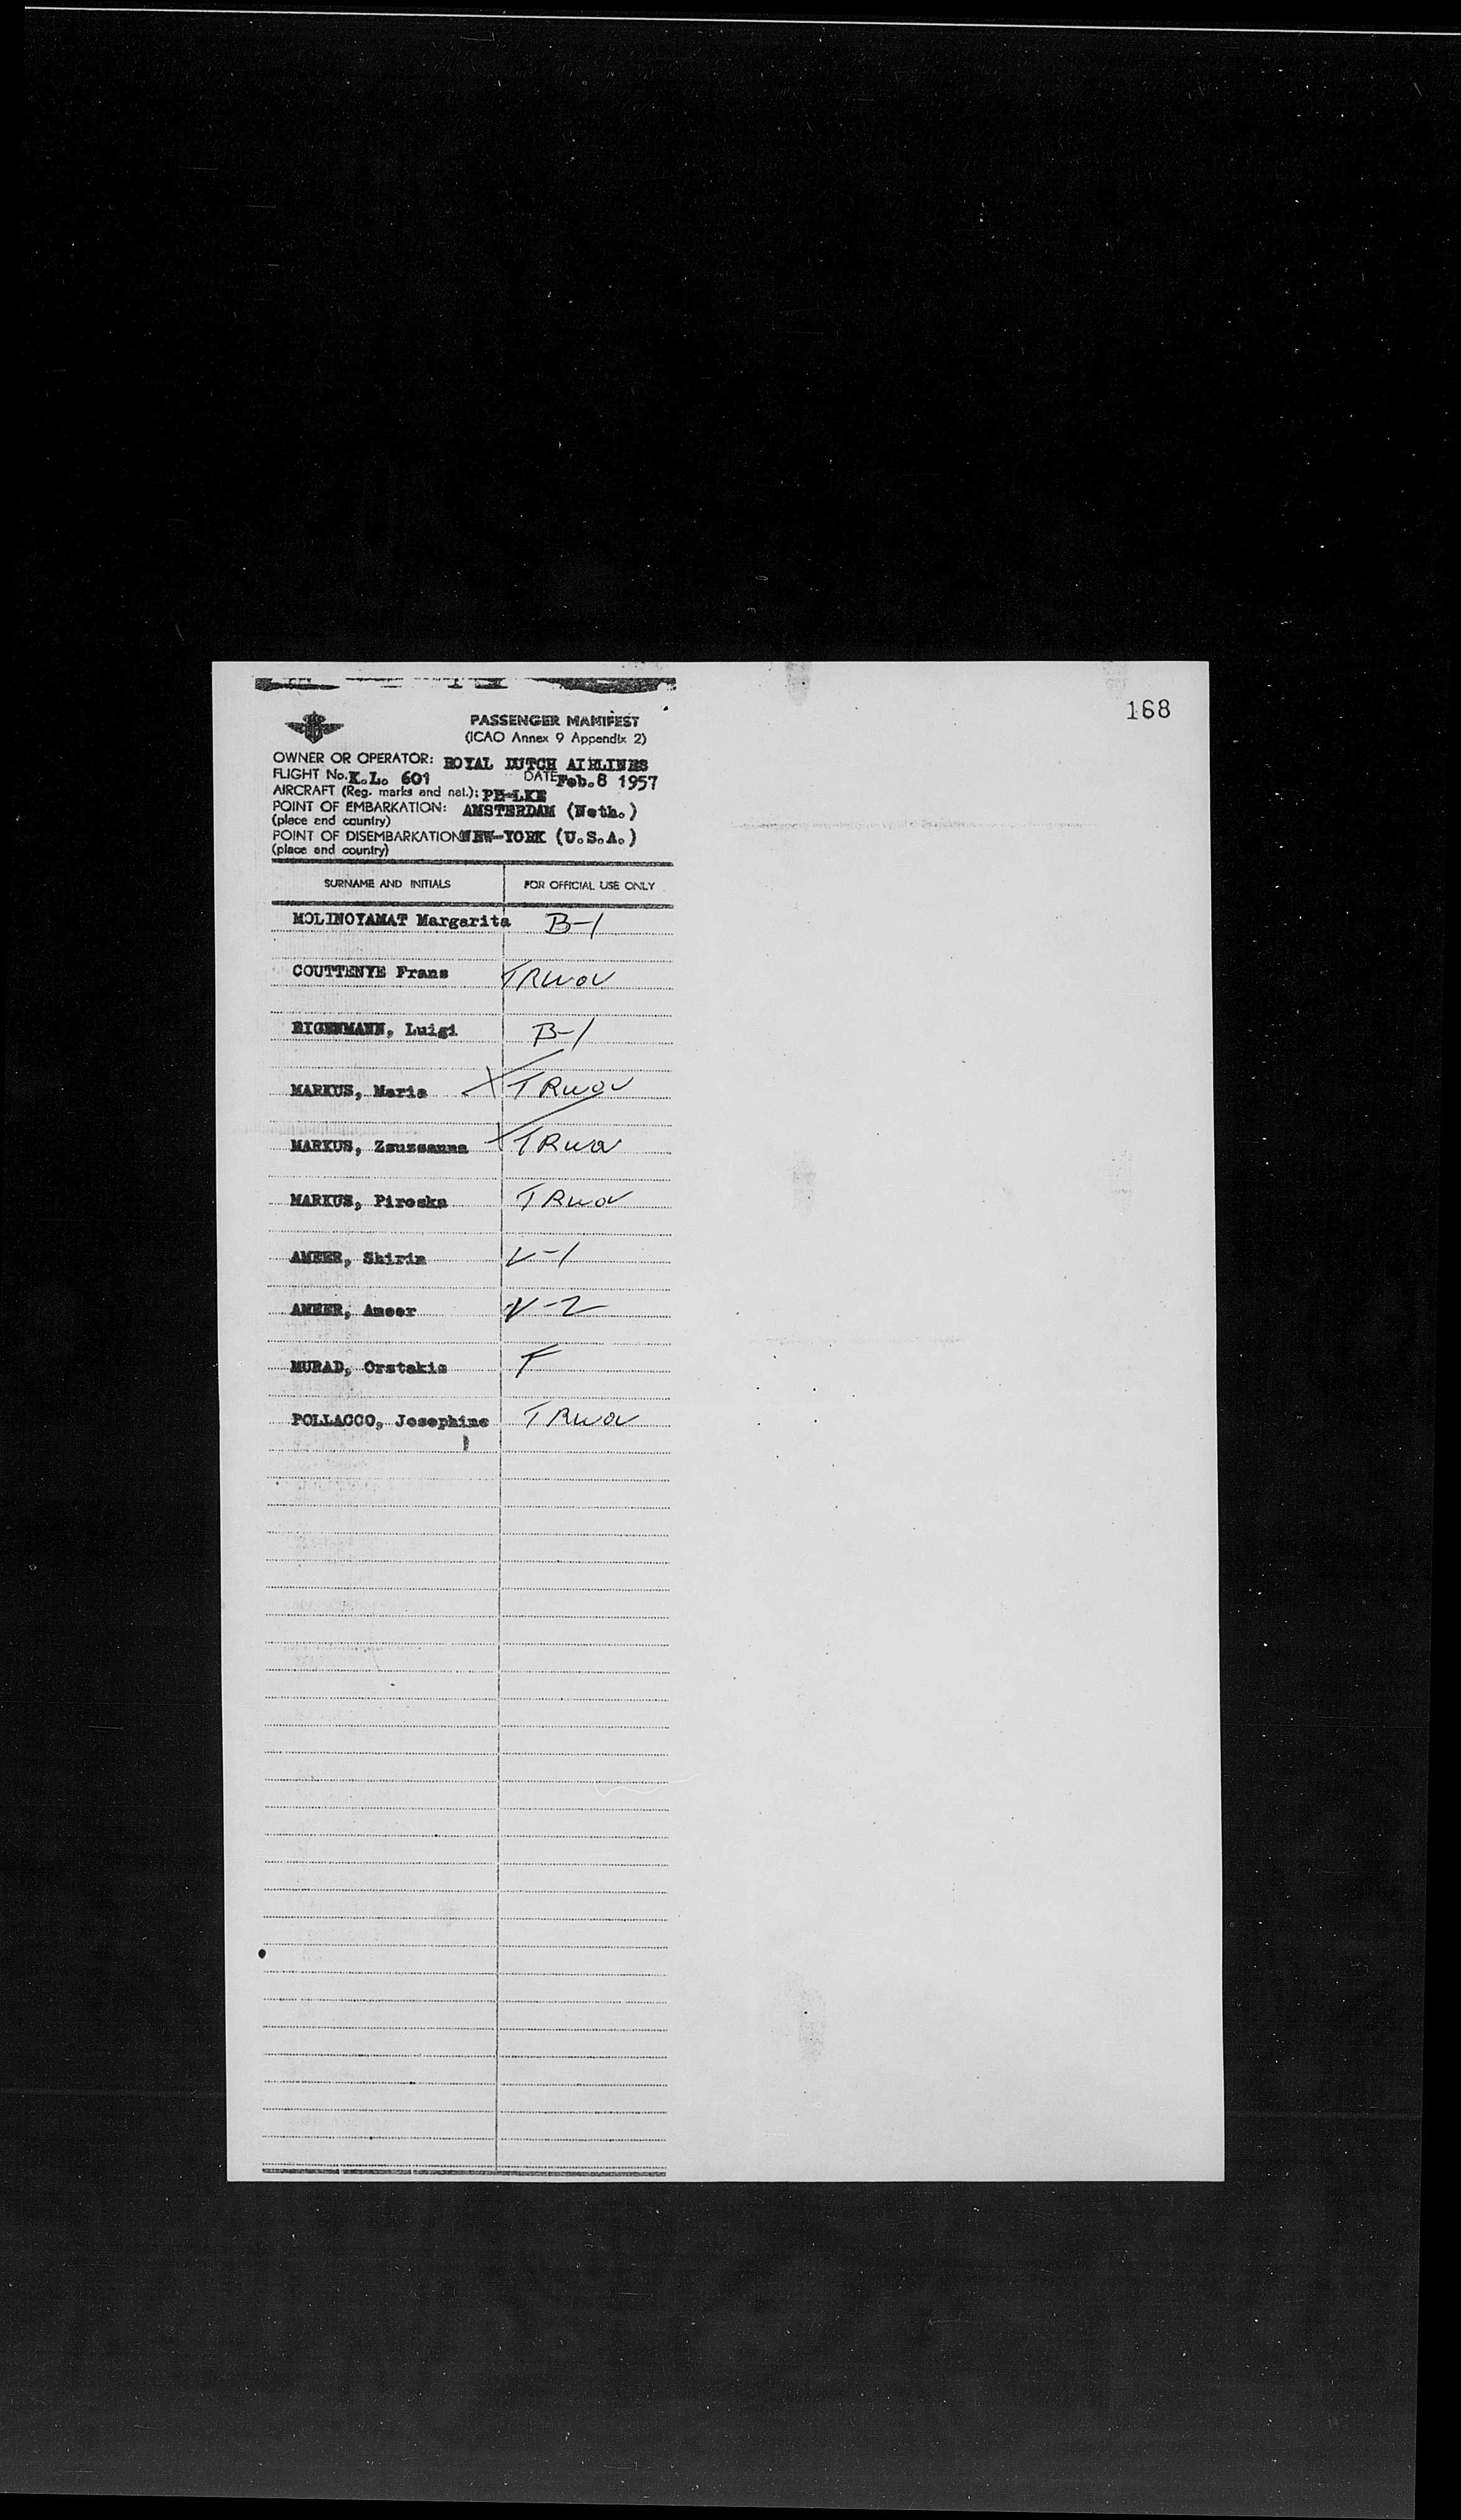 168
PASSENGER MANIFEST
(ICAO Annex 9 Appendix 2)
OWNER OR OPERATOR: ROYAL DUTCH AIRLINES
FLIGHT No. K.L. 601 DATE Feb. 8 1957
AIRCRAFT (Reg. marks and nat.): PH-LKE
POINT OF EMBARKATION: AMSTERDAM (Neth.)
(place and country)
POINT OF DISEMBARKATION: NEW-YORK (U.S.A.)
(place and country)
SURNAME AND INITIALS FOR OFFICIAL USE ONLY
MOLINOYAMAT Margarita B-1
COUTTENYE Frans TRWOV
EIGENMANN, Luigi B-1
MARKUS, Maria TRWOV
MARKUS, Zsuzsanna TRWOV
MARKUS, Piroska TRWOV
AMEER, Shirin V-1
AMEER, Ameer V-2
MURAD, Orstakis F
POLLACCO, Josephine TRWOV